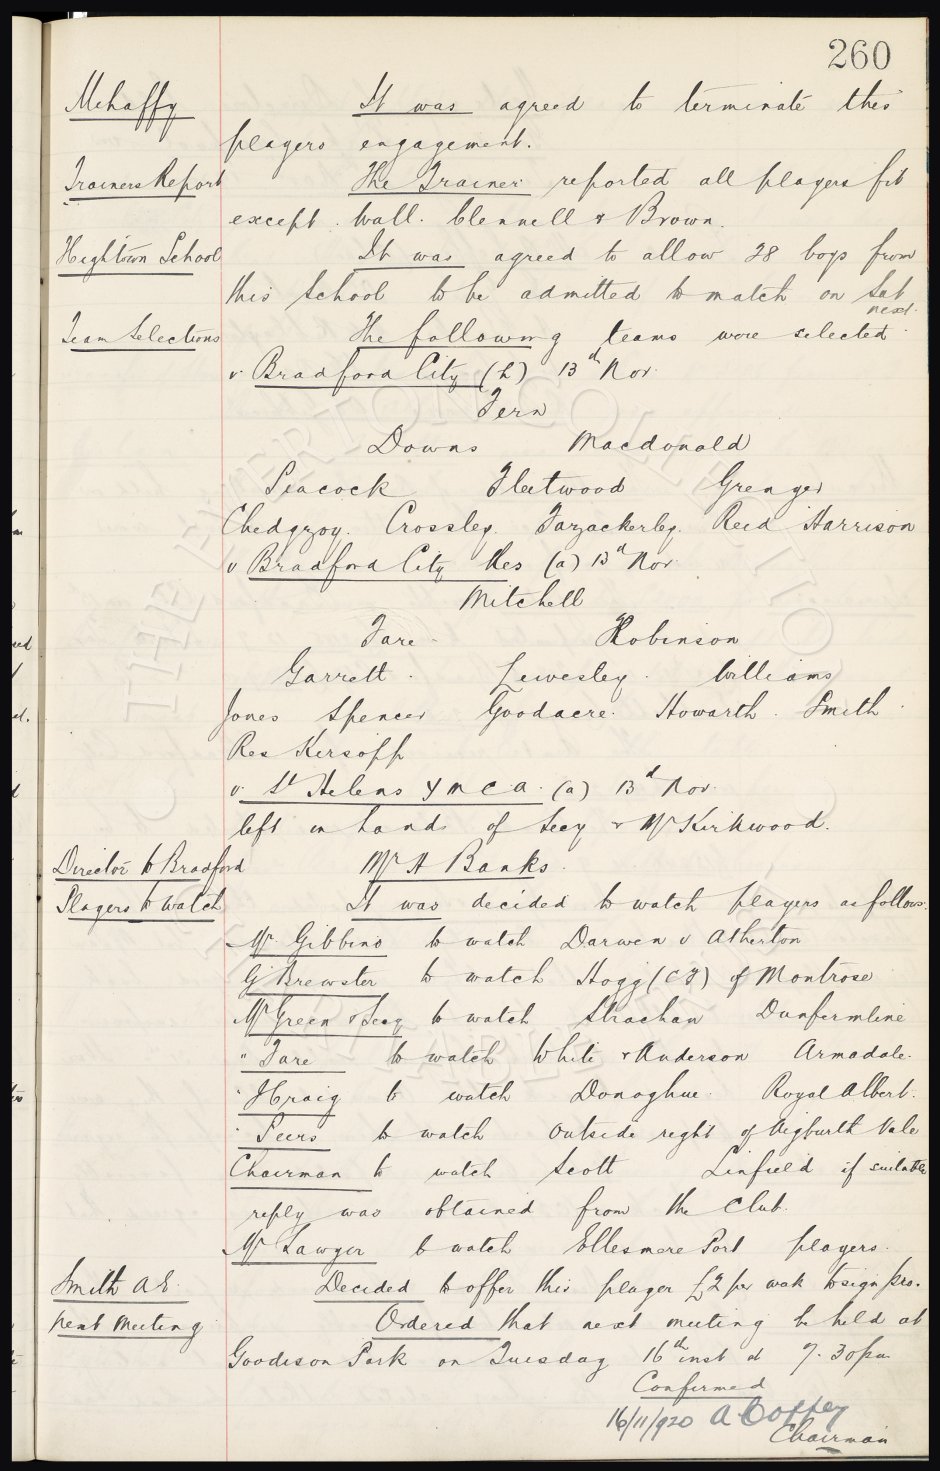 260
Mehaffy It was agreed to terminate this
players engagement.
Trainers Report The Trainer reported all players fit
except Wall. Clennell & Brown.
Hightown School It was agreed to allow 28 boys from
this School to be admitted to match on Sat
next.
Team Selections The following teams were selected
v. Bradford City (h) 13th Nov.
Fern
Downs Macdonald
Peacock Fleetwood Grenyer
Chedgzoy. Crossley. Fazackerley. Reid Harrison
v Bradford City Res (a) 13th Nov.
Mitchell
Tare Robinson
Garrett. Lewesley. Williams
Jones Spencer Goodacre. Howarth. Smith.
Res Kersopp
v. St Helens Y M C A. (a) 13th Nov.
left in hands of Secy & Mr Kirkwood.
Director to Bradford Mr H Banks.
Players to Watch It was decided to watch players as follows.
Mr Gibbins to watch Darwen v Atherton
G Brewster to watch Hogg (CF) of Montrose
Mr Green & Secy to watch Strachan Dunfermline
" Tare to watch White & Anderson Armadale.
" Haig to watch Donoghue. Royal Albert.
" Peers to watch outside right of Aigburth Vale
Chairman to watch Scott Linfield if suitable
reply was obtained from the Club.
Mr Sawyer to watch Ellesmere Port players.
Smith A E. Decided to offer this player £2 per week to sign pro.
Next Meeting Ordered that next meeting be held at
Goodison Park on Tuesday 16th inst at 7.30 pm.
Confirmed
16/11/920 A Coffey
Chairman